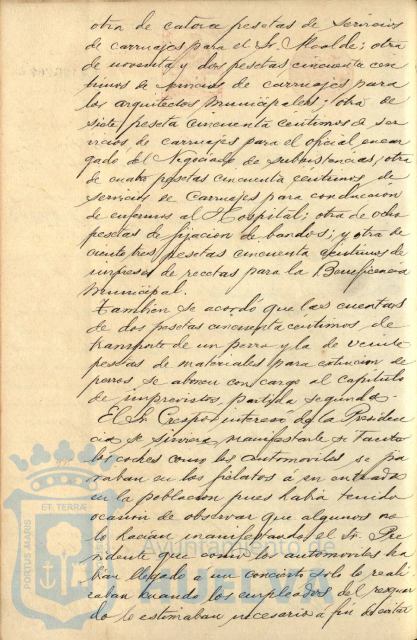 otra de catorce pesetas de servicios
de carruajes para el Sr. Alcalde; otra
de noventa y dos pesetas cincuenta cen
timos de servicios de carruajes para
los arquitectos municipales; otra de
siete peseta cincuenta centimos de ser
vicios de carruajes para el oficial encar
gado del Negociado de subsistencias, otra
de cuatro pesetas cincuenta centimos de
servicios de carruajes para conduccion
de enfermos al Hospital; otra de ocho
pesetas de fijacion de bandos; y otra de
ciento tres pesetas cincuenta centimos de
impresos de recetas para la Beneficencia
municipal.
Tambien se acordó que las cuentas
de dos pesetas cincuenta centimos de
transporte de un perro y la de veinte
pesetas de materiales para extincion de
perros se abonen con cargo al Capitulo
de imprevistos, partida segunda.
El Sr. Crespo interesó de la Presiden
cia se sirviera manifestarle si tanto
los coches como los automoviles se pa
raban en los fielatos á su entrada
en la poblacion pues habia tenido
ocasion de observar que algunos no
lo hacian manifestando el Sr. Pre
sidente que como los automoviles ha
bian llegado a un concierto solo lo reali
zaban cuando los empleados del resguar
do lo estimaban necesario á fin de evitar
PORTUS MARIS ET TERRÆ
Ayuntamiento de
HUELVA